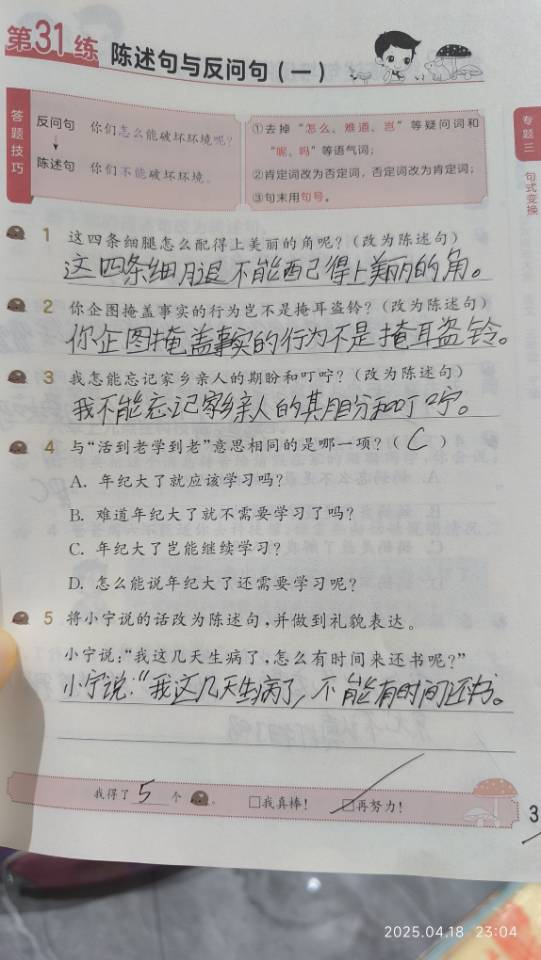 第31练 陈述句与反问句(一)
答题技巧
反问句 你们怎么能破坏环境呢?
↓
陈述句 你们不能破坏环境。
①去掉“怎么、难道、岂”等疑问词和
“呢、吗”等语气词;
②肯定词改为否定词,否定词改为肯定词;
③句末用句号。
专题三 句式变换
1 这四条细腿怎么配得上美丽的角呢?(改为陈述句)
这四条细腿不能配得上美丽的角。
2 你企图掩盖事实的行为岂不是掩耳盗铃?(改为陈述句)
你企图掩盖事实的行为不是掩耳盗铃。
3 我怎能忘记家乡亲人的期盼和叮咛?(改为陈述句)
我不能忘记家乡亲人的期盼和叮咛。
4 与“活到老学到老”意思相同的是哪一项?( C )
A. 年纪大了就应该学习吗?
B. 难道年纪大了就不需要学习了吗?
C. 年纪大了岂能继续学习?
D. 怎么能说年纪大了还需要学习呢?
5 将小宁说的话改为陈述句,并做到礼貌表达。
小宁说:“我这几天生病了,怎么有时间来还书呢?”
小宁说:“我这几天生病了,不能有时间还书。
我得了 5 个 。 □我真棒! □再努力!
3
2025.04.18 23:04